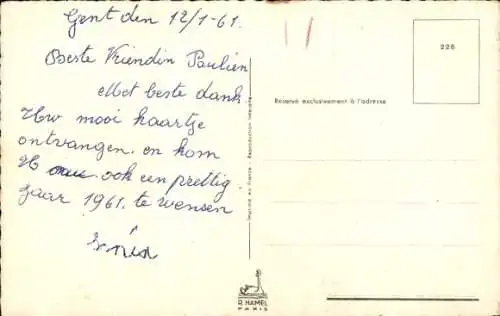 Gent den 12/1-61.
Beste Vriendin Paulien
Met beste dank
Uw mooi kaartje
ontvangen. en kom
U ook een prettig
jaar 1961. te wensen
226
Réservé exclusivement à l'adresse
Imprimé en France - Reproduction interdite
R. HAMEL
PARIS